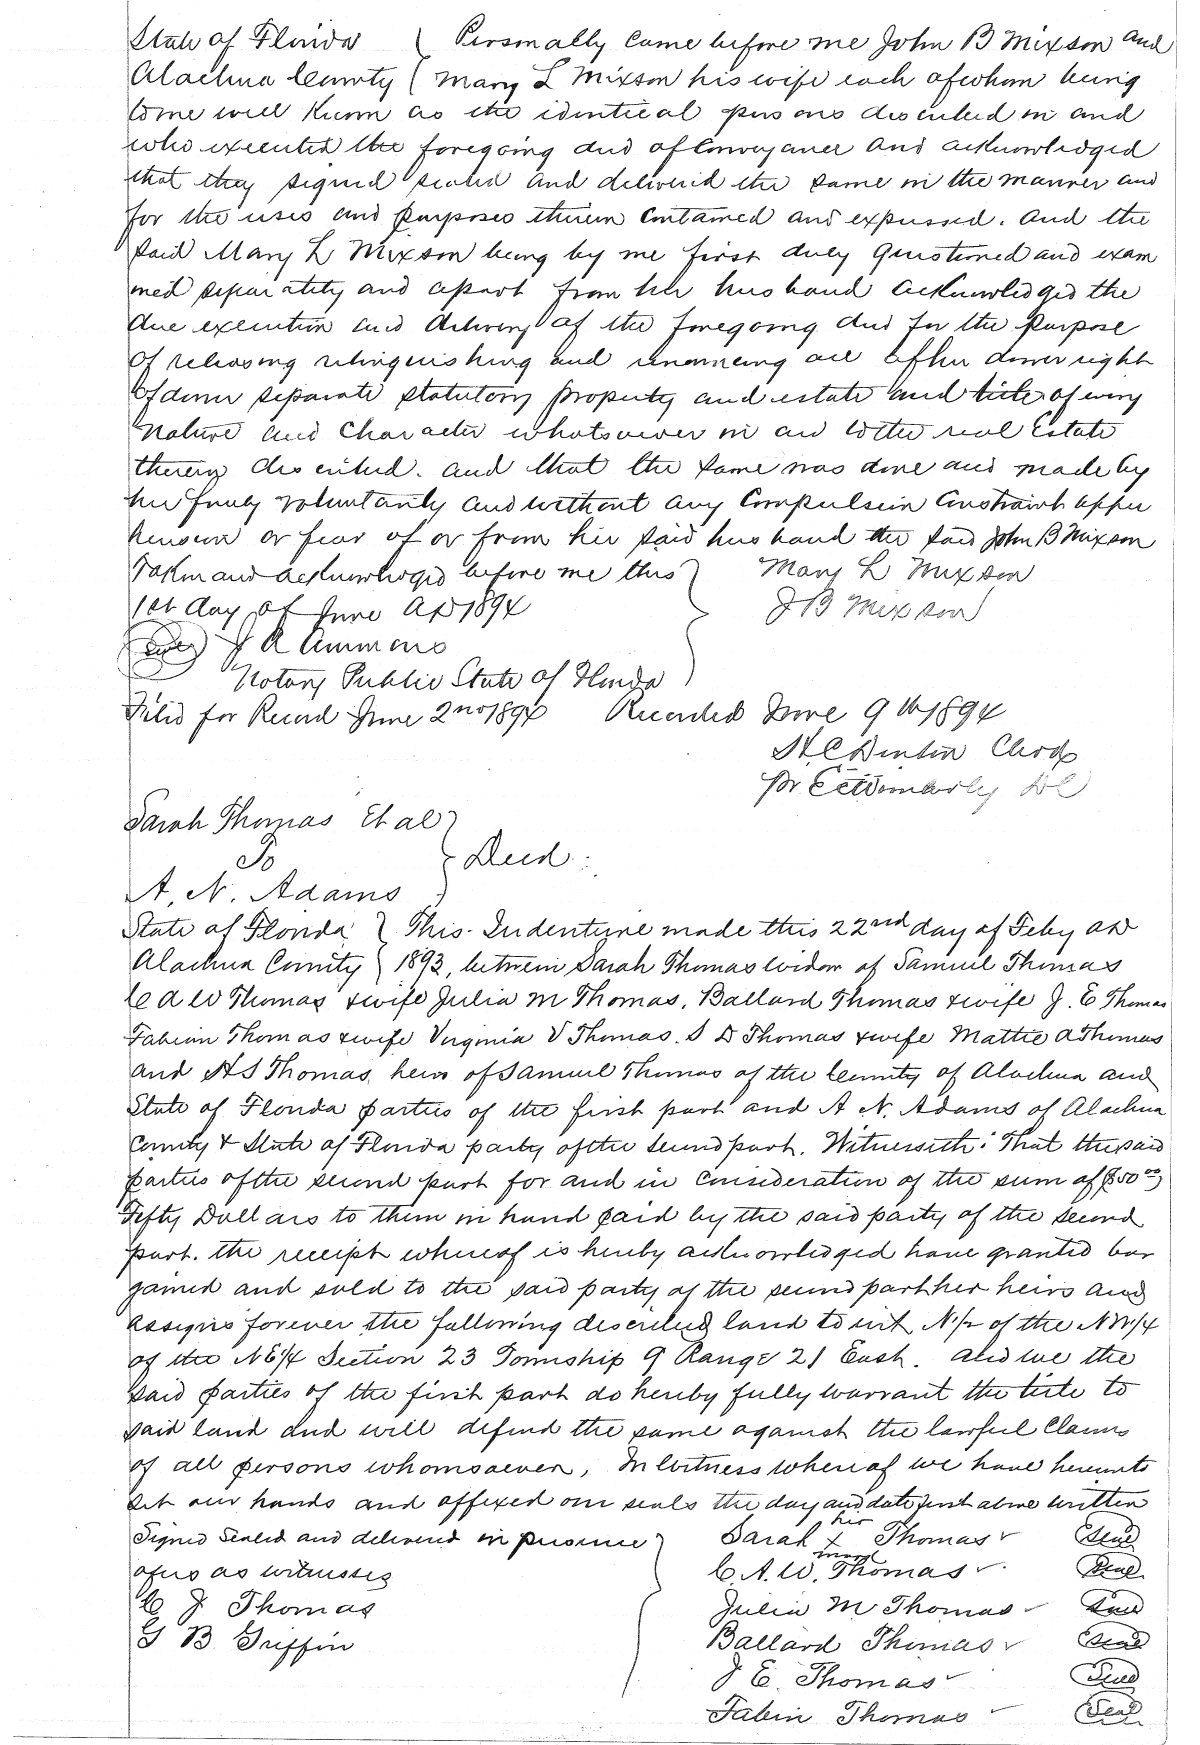 State of Florida ( Personally came before me John B Mixson and
Alachua County ( Mary L Mixson his wife each of whom being
to me well known as the identical persons described in and
who executed the foregoing deed of conveyance and acknowledged
that they signed sealed and delivered the same in the manner and
for the uses and purposes therein contained and expressed. And the
said Mary L Mixson being by me first duly questioned and exam
ined separately and apart from her husband acknowledged the
due execution and delivery of the foregoing deed for the purpose
of releasing relinquishing and renouncing all of her dower right
of dower separate statutory property and estate and title of every
nature and character whatsoever in and to the real Estate
therein described. and that the same was done and made by
her freely voluntarily and without any Compulsion Constraint appre
hension or fear of or from her said husband the said John B Mixson
Taken and acknowledged before me this } Mary L Mixson
1st day of June AD 1894 J B Mixson
(Seal) J R Ammons
Notary Public State of Florida
Filed for Record June 2nd 1894 Recorded June 9th 1894
H C Denton Clerk
pr DC
Sarah Thomas Et al }
To } Deed:
A. N. Adams }
State of Florida } This Indenture made this 22nd day of Feby AD
Alachua County } 1893, between Sarah Thomas widow of Samuel Thomas
C A W Thomas & wife Julia M Thomas, Ballard Thomas & wife J. E Thomas
Fabian Thomas & wife Virginia V Thomas. S D Thomas & wife Mattie A Thomas
and H S Thomas heirs of Samuel Thomas of the County of Alachua and
State of Florida parties of the first part and A N. Adams of Alachua
County & State of Florida party of the second part. Witnesseth: That the said
parties of the second part for and in consideration of the sum of ($50 00)
Fifty Dollars to them in hand paid by the said party of the second
part. the receipt whereof is hereby acknowledged have granted bar
gained and sold to the said party of the second part her heirs and
assigns forever the following described land to wit N 1/2 of the NW 1/4
of the NE 1/4 Section 23 Township 9 Range 21 East. And we the
said parties of the first part do hereby fully warrant the title to
said land and will defend the same against the lawful Claims
of all persons whomsoever, In witness whereof we have hereunto
set our hands and affixed our seals the day and date first above written
Signed Sealed and delivered in presence } Sarah his x mark Thomas (Seal)
of us as witnesses C. A. W. Thomas (Seal)
C J Thomas Julia M Thomas (Seal)
G B Griffin Ballard Thomas (Seal)
J E. Thomas (Seal)
Fabin Thomas (Seal)